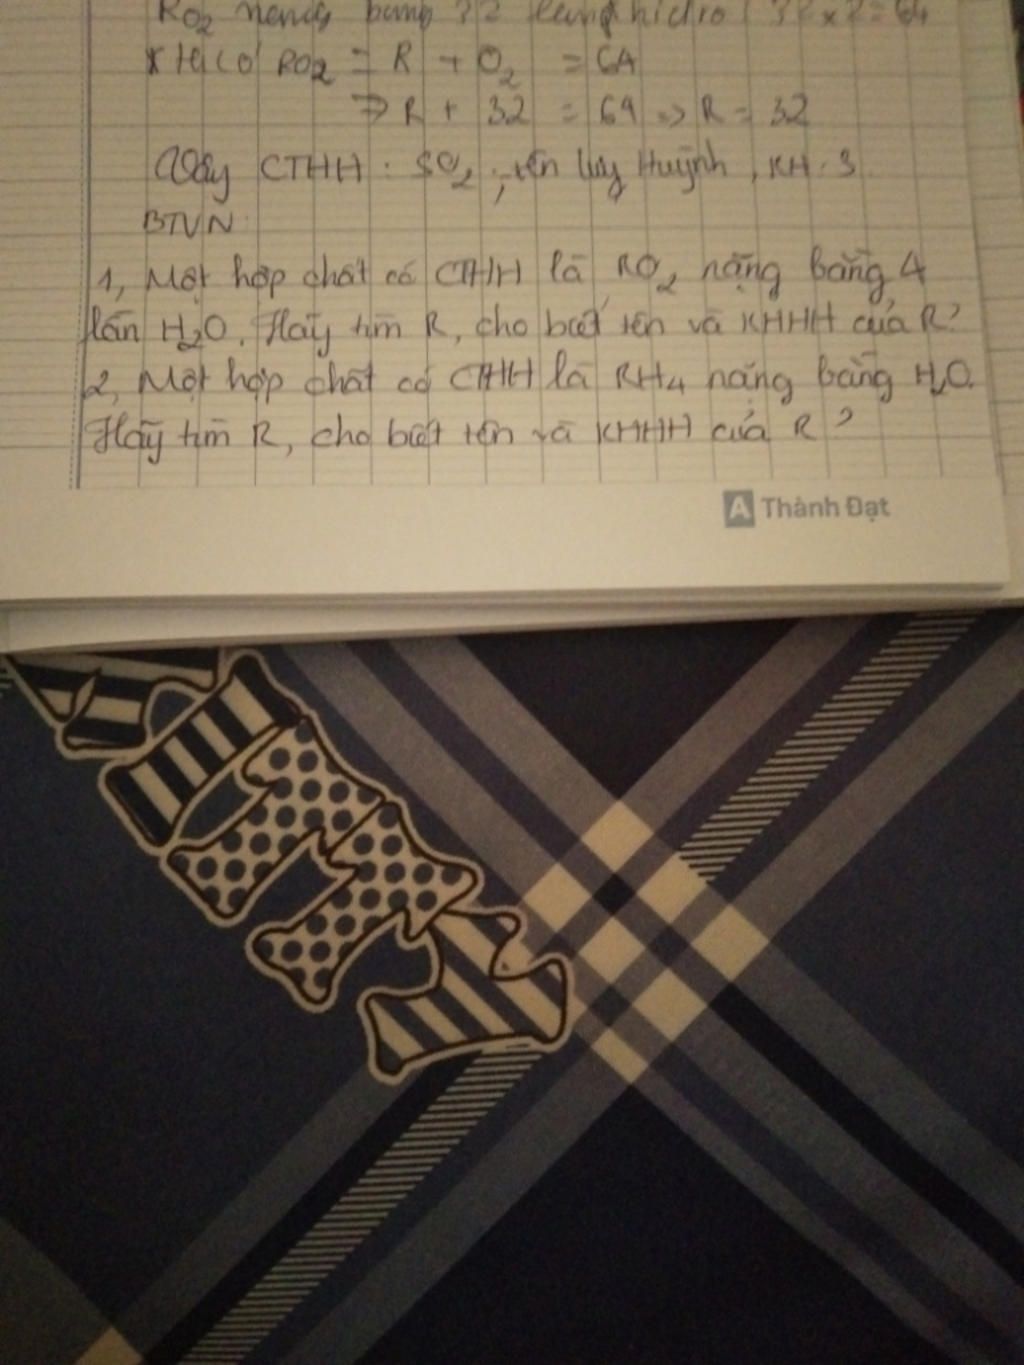 RO2 nặng bằng 32 lần hidro 32 x 2 = 64
* Ta có RO2 = R + O2 = 64
=> R + 32 = 64 => R = 32
Vậy CTHH : SO2 ; tên lưu Huỳnh , KH . S
BTVN
1, Một hợp chất có CTHH là RO2 nặng bằng 4
lần H2O. Hãy tìm R, cho biết tên và KHHH của R?
2, Một hợp chất có CTHH là RH4 nặng bằng H2O.
Hãy tìm R, cho biết tên và KHHH của R ?
A Thành Đạt